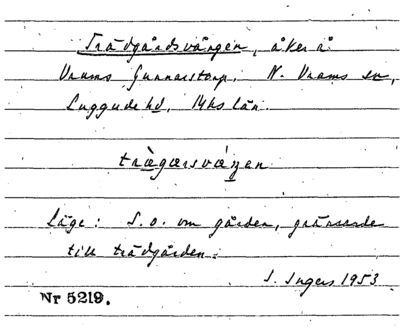 Trädgårdsvången, åker å
Vrams Gunnarstorp, N. Vrams sn,
Luggude hd, Mhs län.
trägårsváŋen
Läge: S.o. om gården, gränsande
till trädgården.
I. Ingers 1953
Nr 5219.